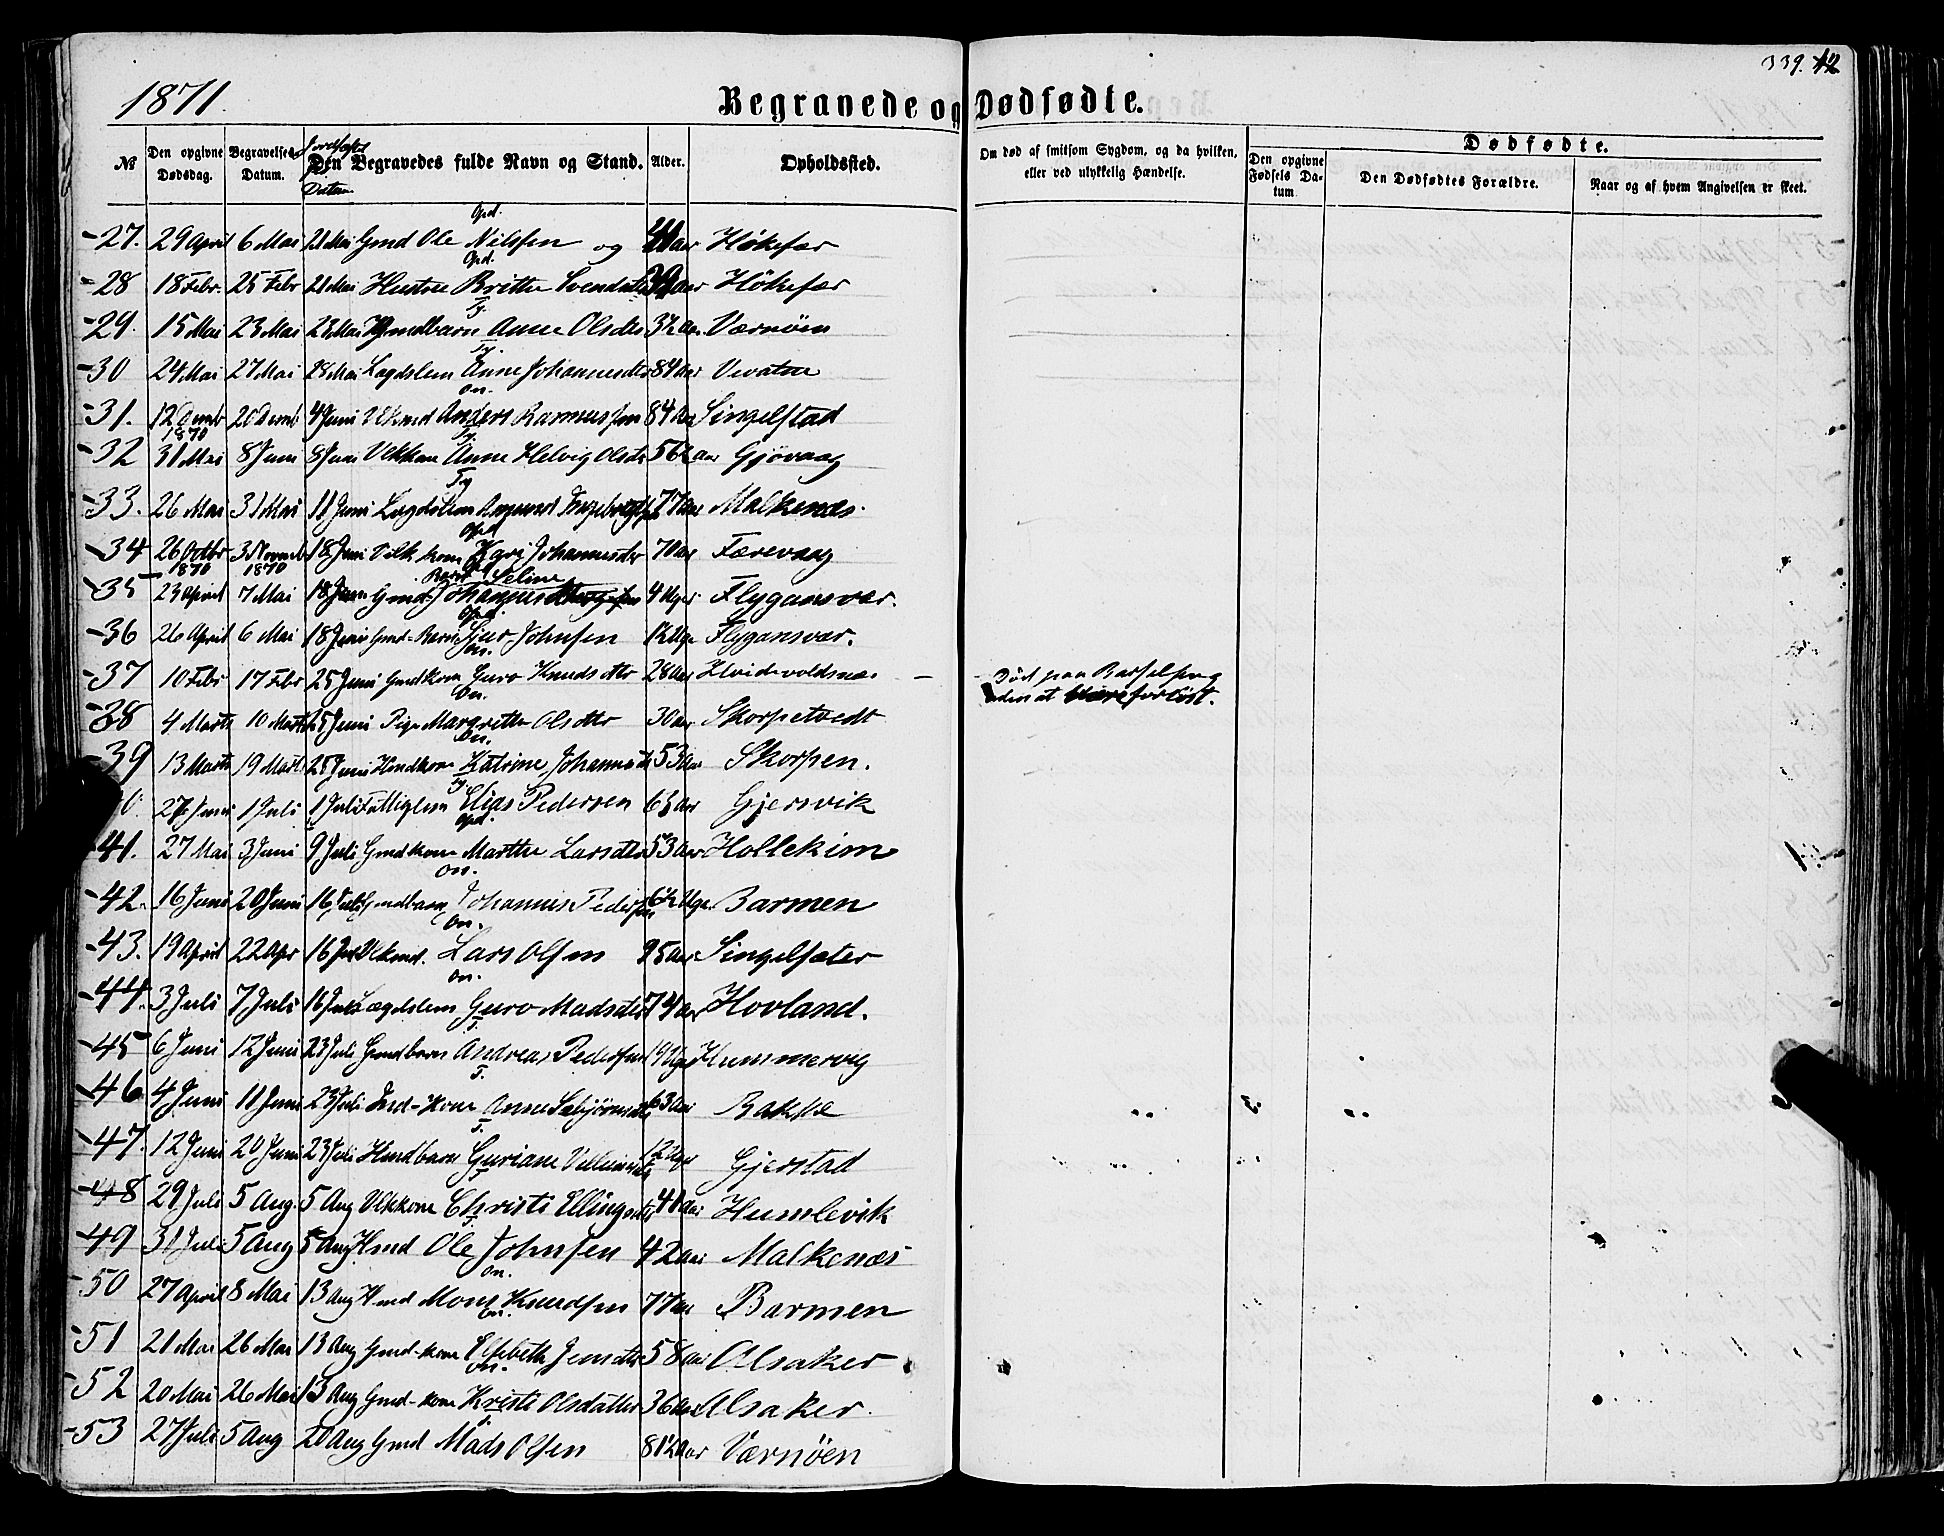 1871.
Begravede og Dødfødte.
339. 42
№
Den opgivne Dødsdag.
Begravelses-Datum.
Jordfæst
Datum
Den Begravedes fulde Navn og Stand.
Alder.
Opholdssted.
Om død af smitsom Sygdom, og da hvilken, eller ved ulykkelig Hændelse.
Dødfødte.
Den opgivne Fødsels Datum.
Den Dødfødtes Forældre.
Naar og af hvem Angivelsen er skeet.
Opd.
27. 29 April 6 Mai 21 Mai Gmd Ole Nilssen og Aar Høkefær
Opd.
28 18 Febr. 25 Febr 21 Mai Hustru Britthe Svendsdtr Aar Høkefær
Ty.
29. 15 Mai 23 Mai 23 Mai Hmdbarn Anne Olsdtr 3½ Aar. Værnøen
Ty.
30 24 Mai 27 Mai 28 Mai Lægdslem Anne Johannesdtr 84 Aar Vevatne
On.
31. 12 Decmbr 1870 20 Decmb 4 Juni Vlkmd Anders Rasmussen 84 Aar Singelstad
Ty.
32 31 Mai 8 Juni 8 Juni Vlkkone Anne Helvig Olsdtr 56½ Aar Gjøvaag
Ty
33. 26 Mai 31 Mai 11 Juni Lægdslem 77 Aar Malkenæs.
Opd
34 26 Octbr 1870 3 Novemb 1870 18 Juni Vilk kone Kari Johannesdtr 70 Aar Færevaag
Barn Seline
35 23 April 7 Mai 18 Juni Gmd. Johannes 4 Uger Flygansvær.
Opd.
36 26 April 6 Mai 18 Juni Gmd-Barn Sjur Johnsen 12 Uge Flygansvær.
On.
37 10 Febr 17 Febr 25 Juni Gmdkone Guro Knudsdtr 28 Aar Hvidevoldsnæs — Død paa Barselseng
uden at være forløst.
On.
38 4 Marts 10 Marts 25 Juni Pige Margrethe Olsdtr 30 Aar Skorpetvedt
On.
39 13 Marts 19 Mart. 25 Juni Hmdkone Katrine Johannesdt 53 Aar Skorpen.
Ty
0. 27 Juni 1 Juli 1 Juli Fattiglem Elias Pedersen 63 Aar Gjersvik
Opd.
41. 27 Mai 3 Juni 9 Juli Gmdkone Marthe Larsdtr 53 Aar Hollekim
On.
42. 16 Juni 20 Juni 16 Juli Gmdbarn Johannes Pedersen 6½ Uge. Barmen
On.
43. 19 April 22 Apr 16 Juli Vlkmd. Lars Olsen 95 Aar Singelsæter
On.
44. 3 Juli 7 Juli 16 Juli Lægdslem Guro Madsdtr 74 Aar Hovland.
T.
45 6 Juni 12 Juni 23 Juli Gmdbarn Andreas Pedersen 14 Uger Hummervig
T.
46 4 Juni 11 Juni 23 Juli Ind-kone Anne 63 Aar Bakke
T.
47. 12 Juni 20 Juni 23 Juli Hmdbarn Guriane Uger Gjerstad
T
48 29 Juli 5 Aug. 5 Aug Vlkkone Christi Ellingsdtr 41 Aar Humlevik
T.
49 31 Juli 5 Aug 5 Aug Hmd Ole Johnsen 42 Aar Malkenæs
On.
50 27 April 8 Mai 13 Aug Hmd Mons Knudsen 77 Aar Barmen
On.
51 21 Mai 26 Mai 13 Aug Gmd-kone Elsebeth Jensdtr 58 Aar Alsaker
On.
52 20 Mai 26 Mai 13 Aug Gmd-kone Kristi Olsdatter 36 Aar Alsaker.
53 27 Juli 5 Aug 20 Aug Gmd Mads Olsen 81½ Aar Værnøen